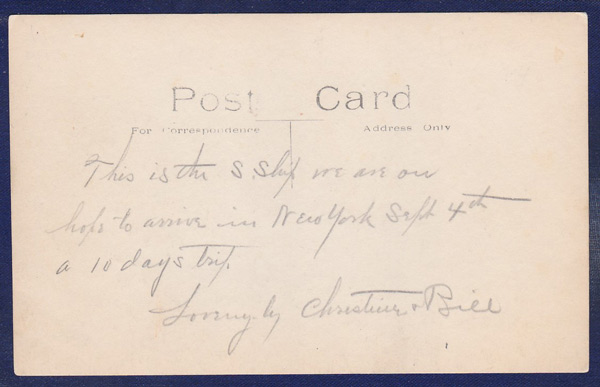 Post Card
For Correspondence Address Only
This is the S. Ship we are on
hope to arrive in New York Sept 4th
a 10 days trip.
Lovingly Christine & Bill